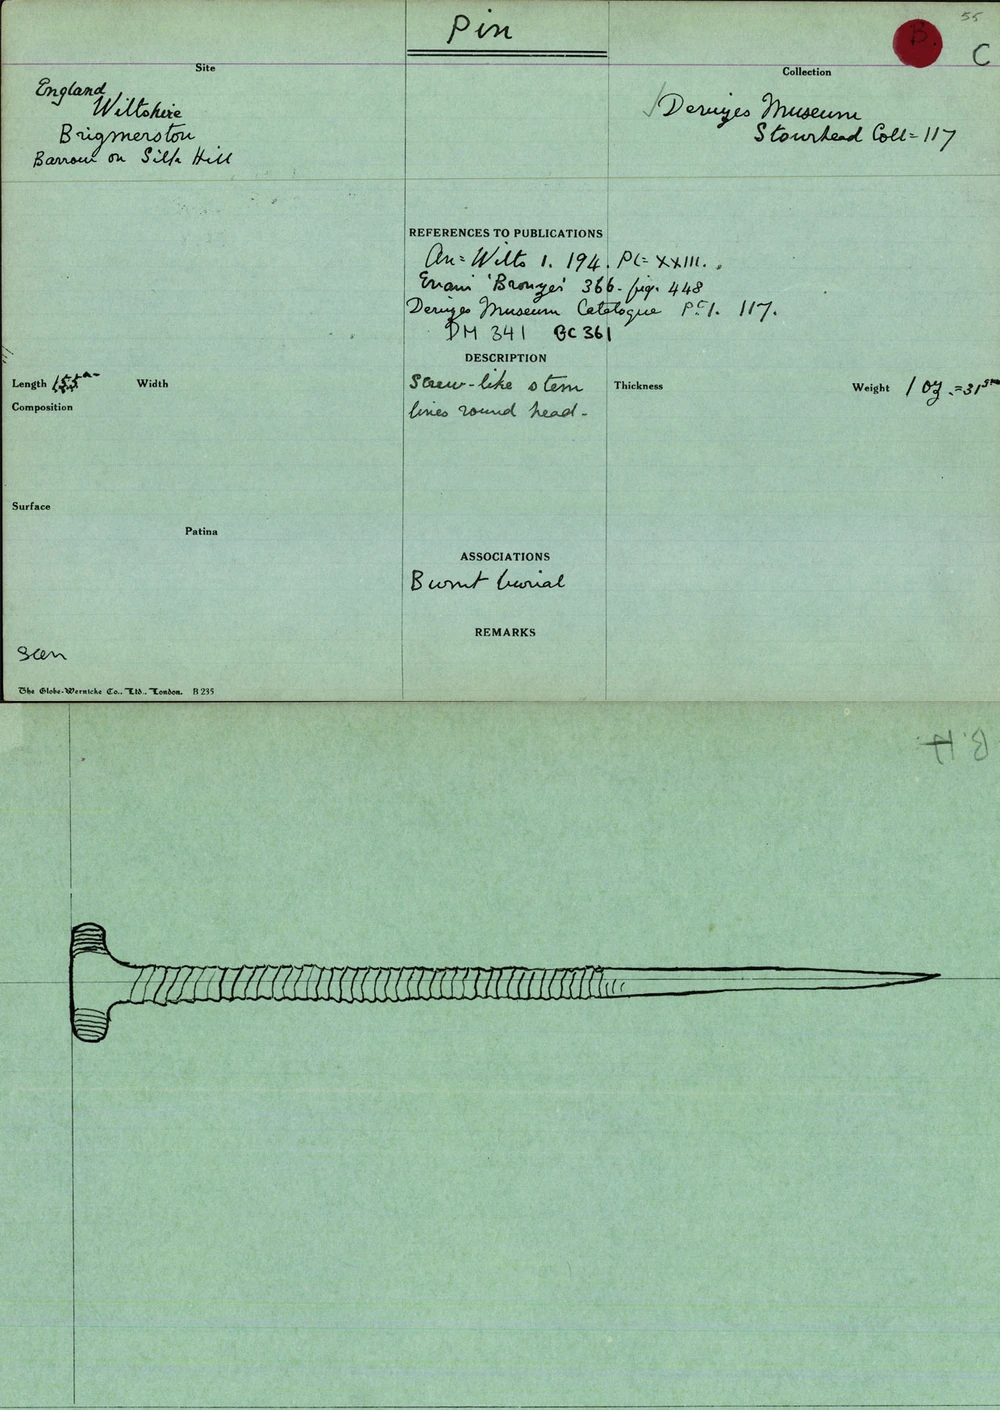 Pin
55
B.
C
Site
England
Wiltshire
Brigmerston
Barrow on Silk Hill
Collection
Devizes Museum
Stourhead Coll= 117
REFERENCES TO PUBLICATIONS
An= Wilts 1. 194. Pl= XXIII.
Evans 'Bronzes' 366. fig. 448
Devizes Museum Catalogue Pt 1. 117.
DM 341 GC 361
DESCRIPTION
Length
Width
Screw-like stem
Thickness
Weight 1 oz.=31
Composition
lines round head-
Surface
Patina
ASSOCIATIONS
Burnt burial
REMARKS
Seen
The Globe-Wernicke Co., Ltd., London. B 235
B.H.